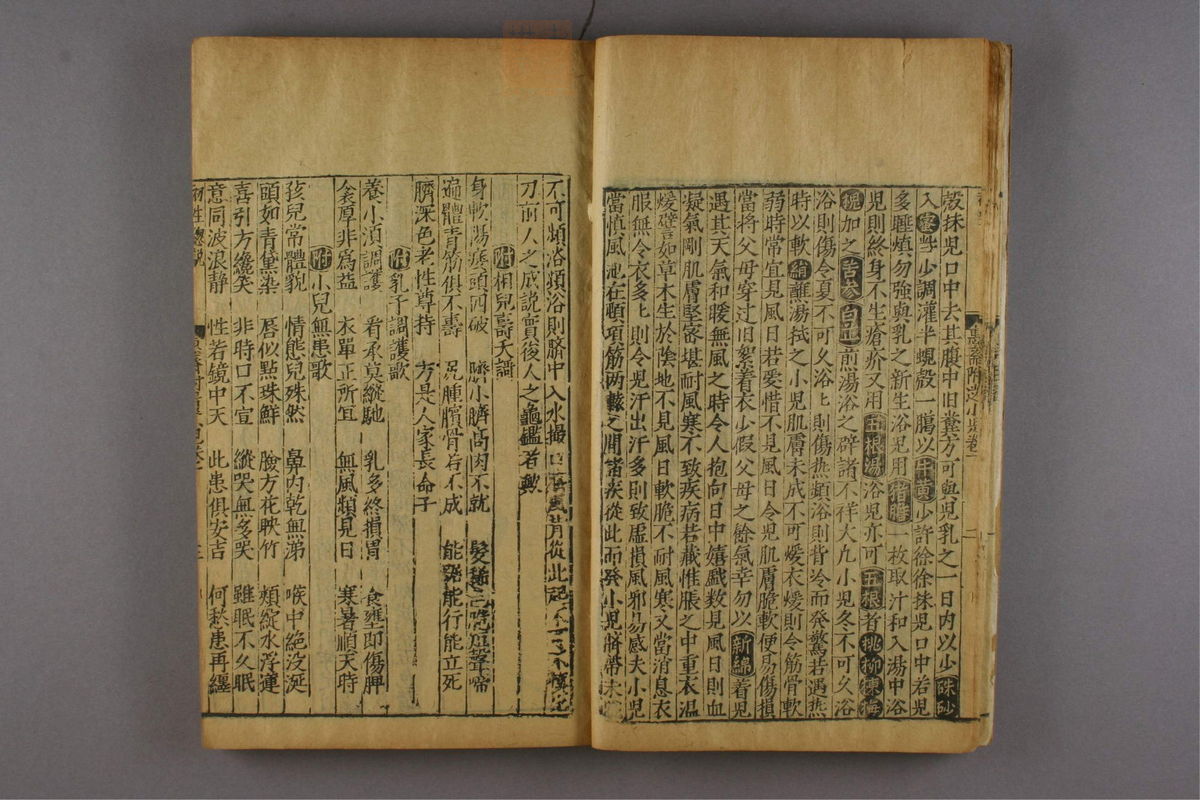 殼抹児口中去其腹中旧糞方可與児乳之一日内以少硃砂
入蜜些少調灌半蜆殼一腸以牛黄少許徐徐抹児口中若児
多睡慎勿強與乳之新生浴児用猪胆一枚取汁和入湯中浴
児則終身不生瘡疥又用五根湯浴児亦可五根者桃柳楝梅
槐加之苦参白芷煎湯浴之辟諸不祥大凢小児冬不可乆浴
浴則傷令夏不可乆浴〻則傷热頻浴則背冷而発驚若遇热
時以軟絹蘸湯拭之小児肌膚未成不可煖衣煖則令筋骨軟
弱時常宜見風日若愛惜不見風日令児肌膚脆軟便易傷損
當将父母穿过旧絮着衣少假父母之餘氣幸勿以新綿着児
遇其天氣和暖無風之時令人抱向日中嬉戯数見風日則血
凝氣剛肌膚堅密堪耐風寒不致疾病若藏惟脹之中重衣温
煖譬如草木生於陰地不見風日軟脆不耐風寒又當消息衣
服無令衣多〻則令児汗出汗多則致虛損風邪易感夫小児
當慎風池在頸項筋两轅之間諸疾從此而発小児臍帶未
不可頻浴頻浴則臍中入水撮口臍風皆從此起
刀前人之成説實後人之龜鑑者歟
附相児壽夭謌
身軟陽痿頭四破　臍小臍髙肉不就　髮稀
遍體青筋俱不壽　尻腫臏骨若不成　能踞能行能立死
臍深色老性尊持　方是人家長命子
附乳子調護歌
養小湏調護　看承莫縱馳　乳多終損胃　食壅即傷脾
衾厚非為益　衣單正所宜　無風頻見日　寒暑順天時
附小児無患歌
孩兒常體貌　情態兒殊然　鼻内乾無涕　喉中絶没涎
頭如青黛染　唇似點珠鮮　臉方花映竹　頬綻水浮蓮
喜引方纔笑　非時口不宣　縱哭無多哭　雖眠不久眠
意同波浪静　性若鏡中天　此患俱安吉　何愁患再纒